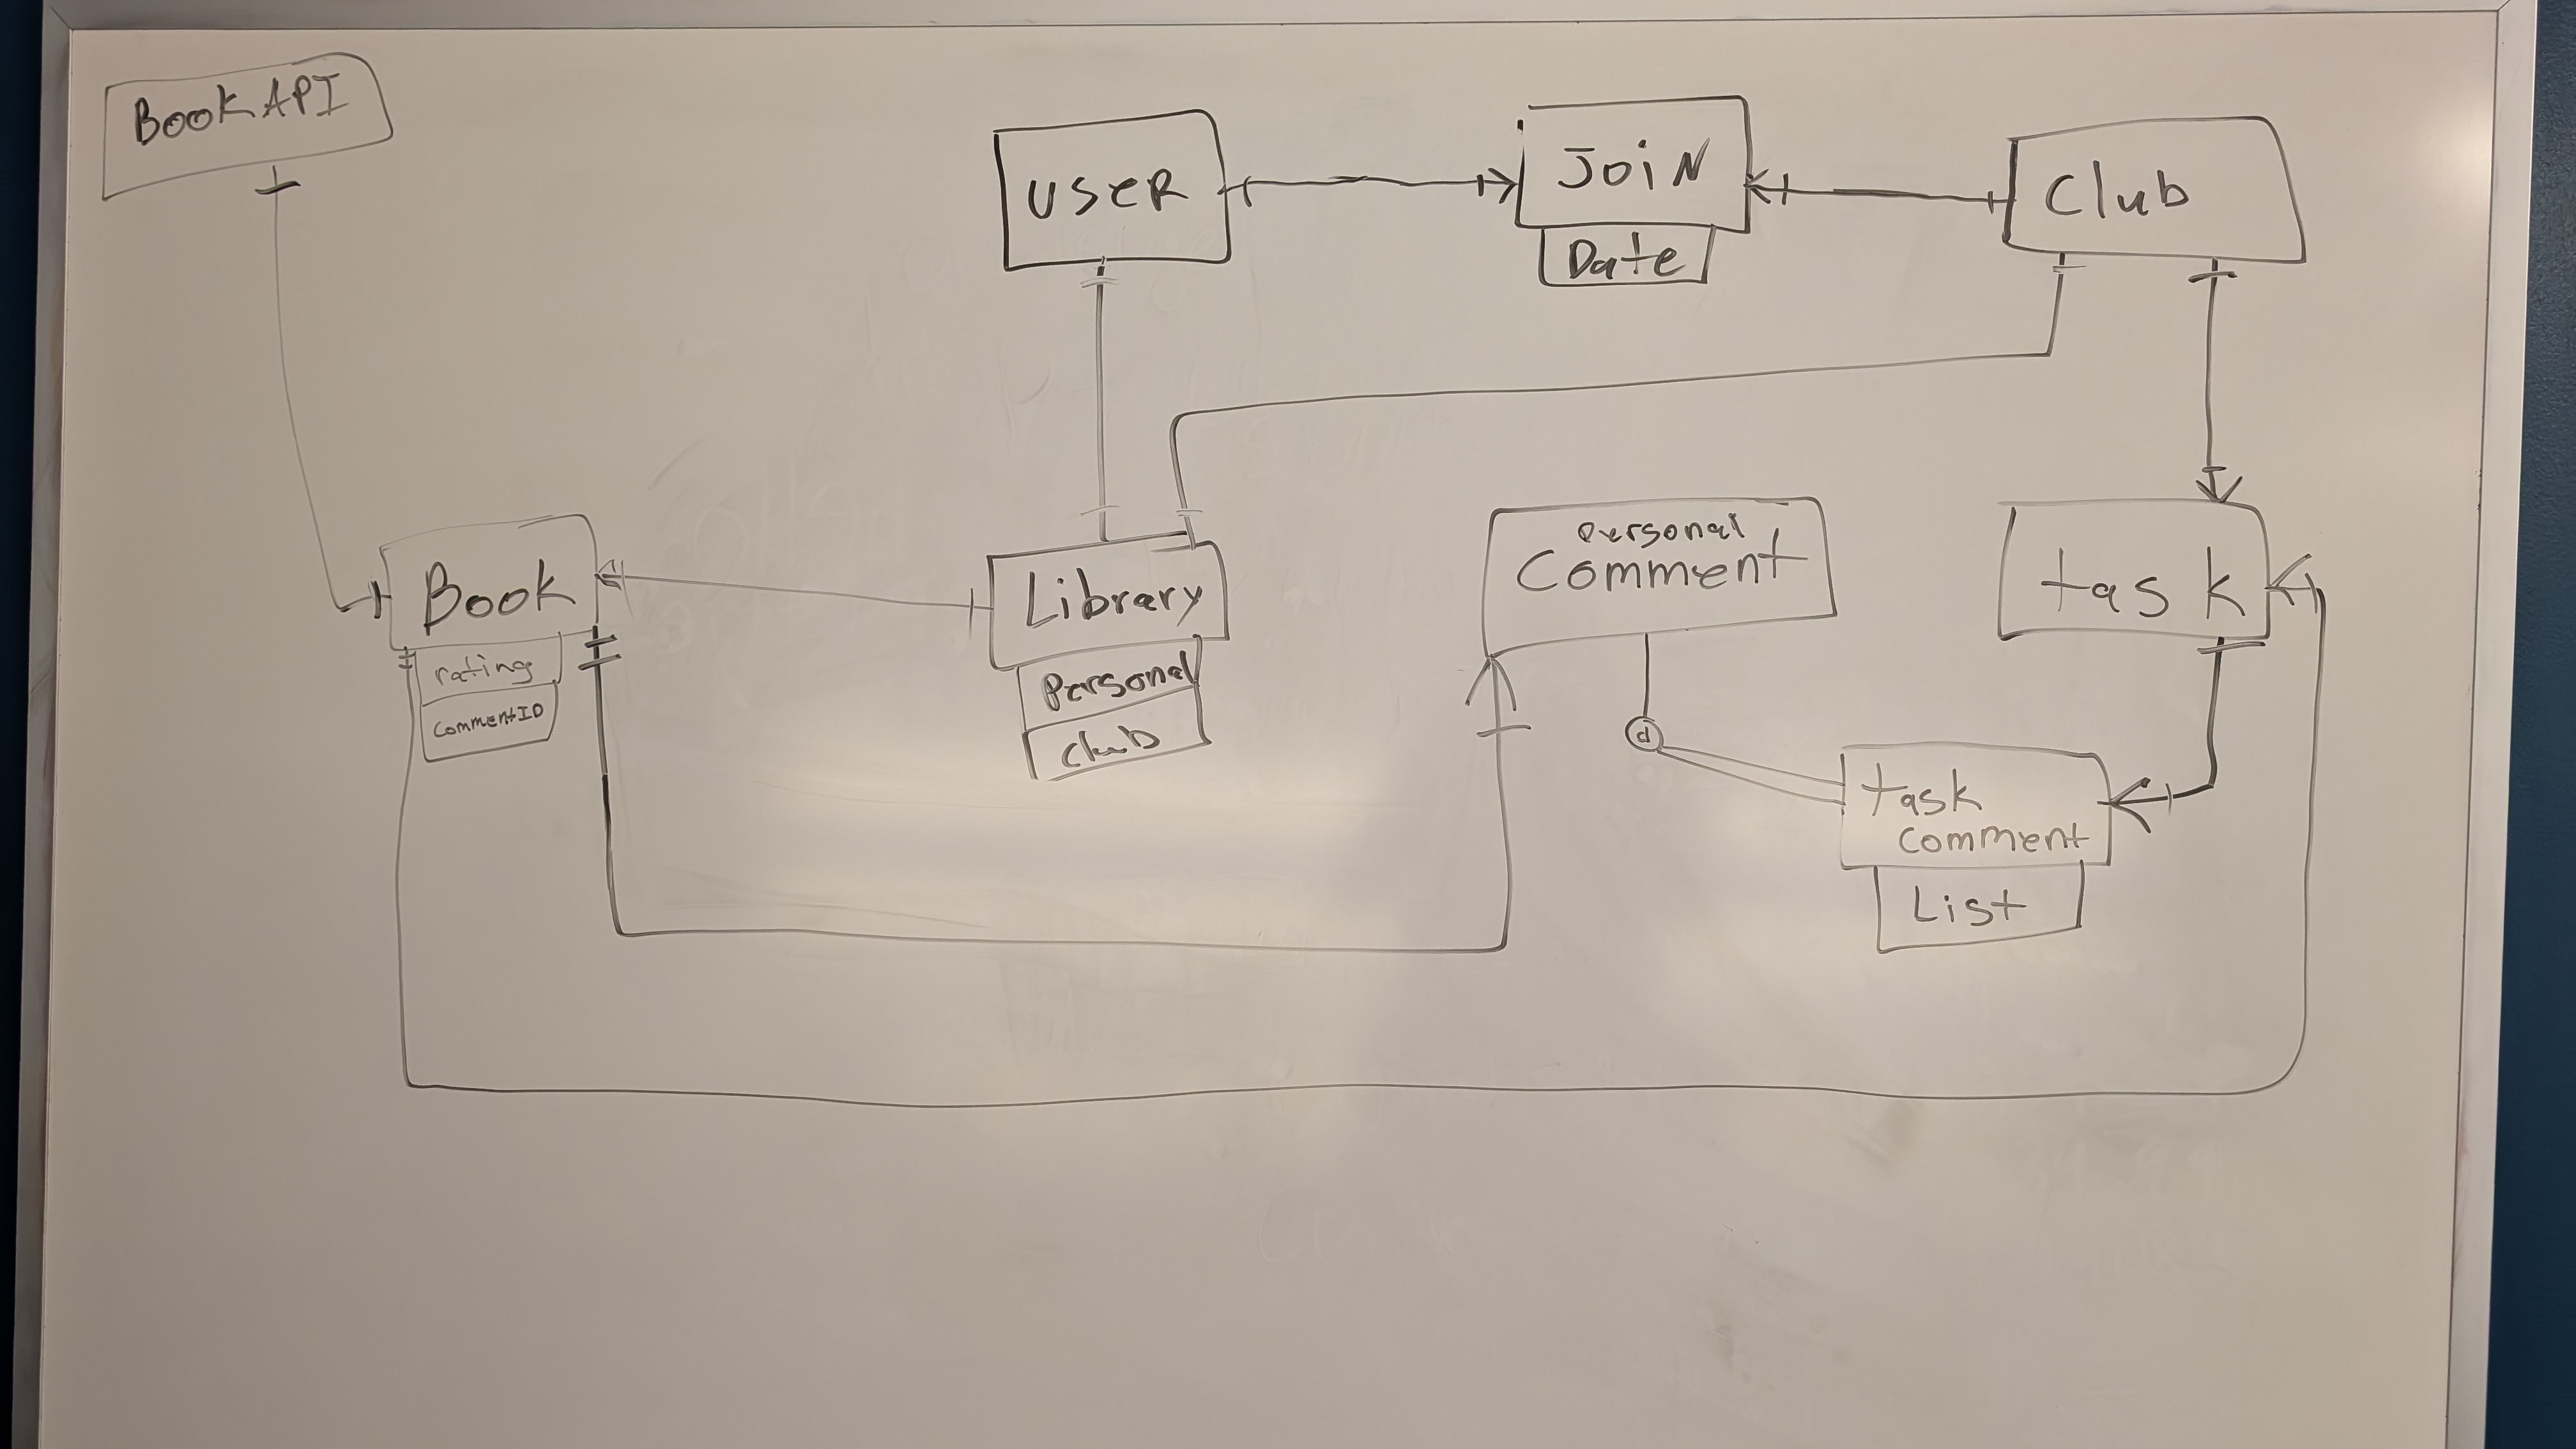 BookAPI
USER
JOIN
Date
Club
Book
rating
CommentID
Library
Personal
Club
Personal
Comment
task
task
comment
List
d